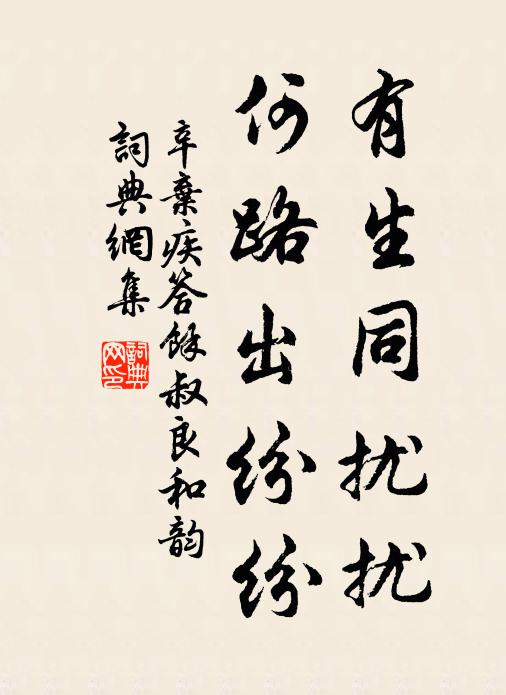 有生同扰扰
何路出纷纷
辛棄疾答餘叔良和韵
詞典網集
詞典網印